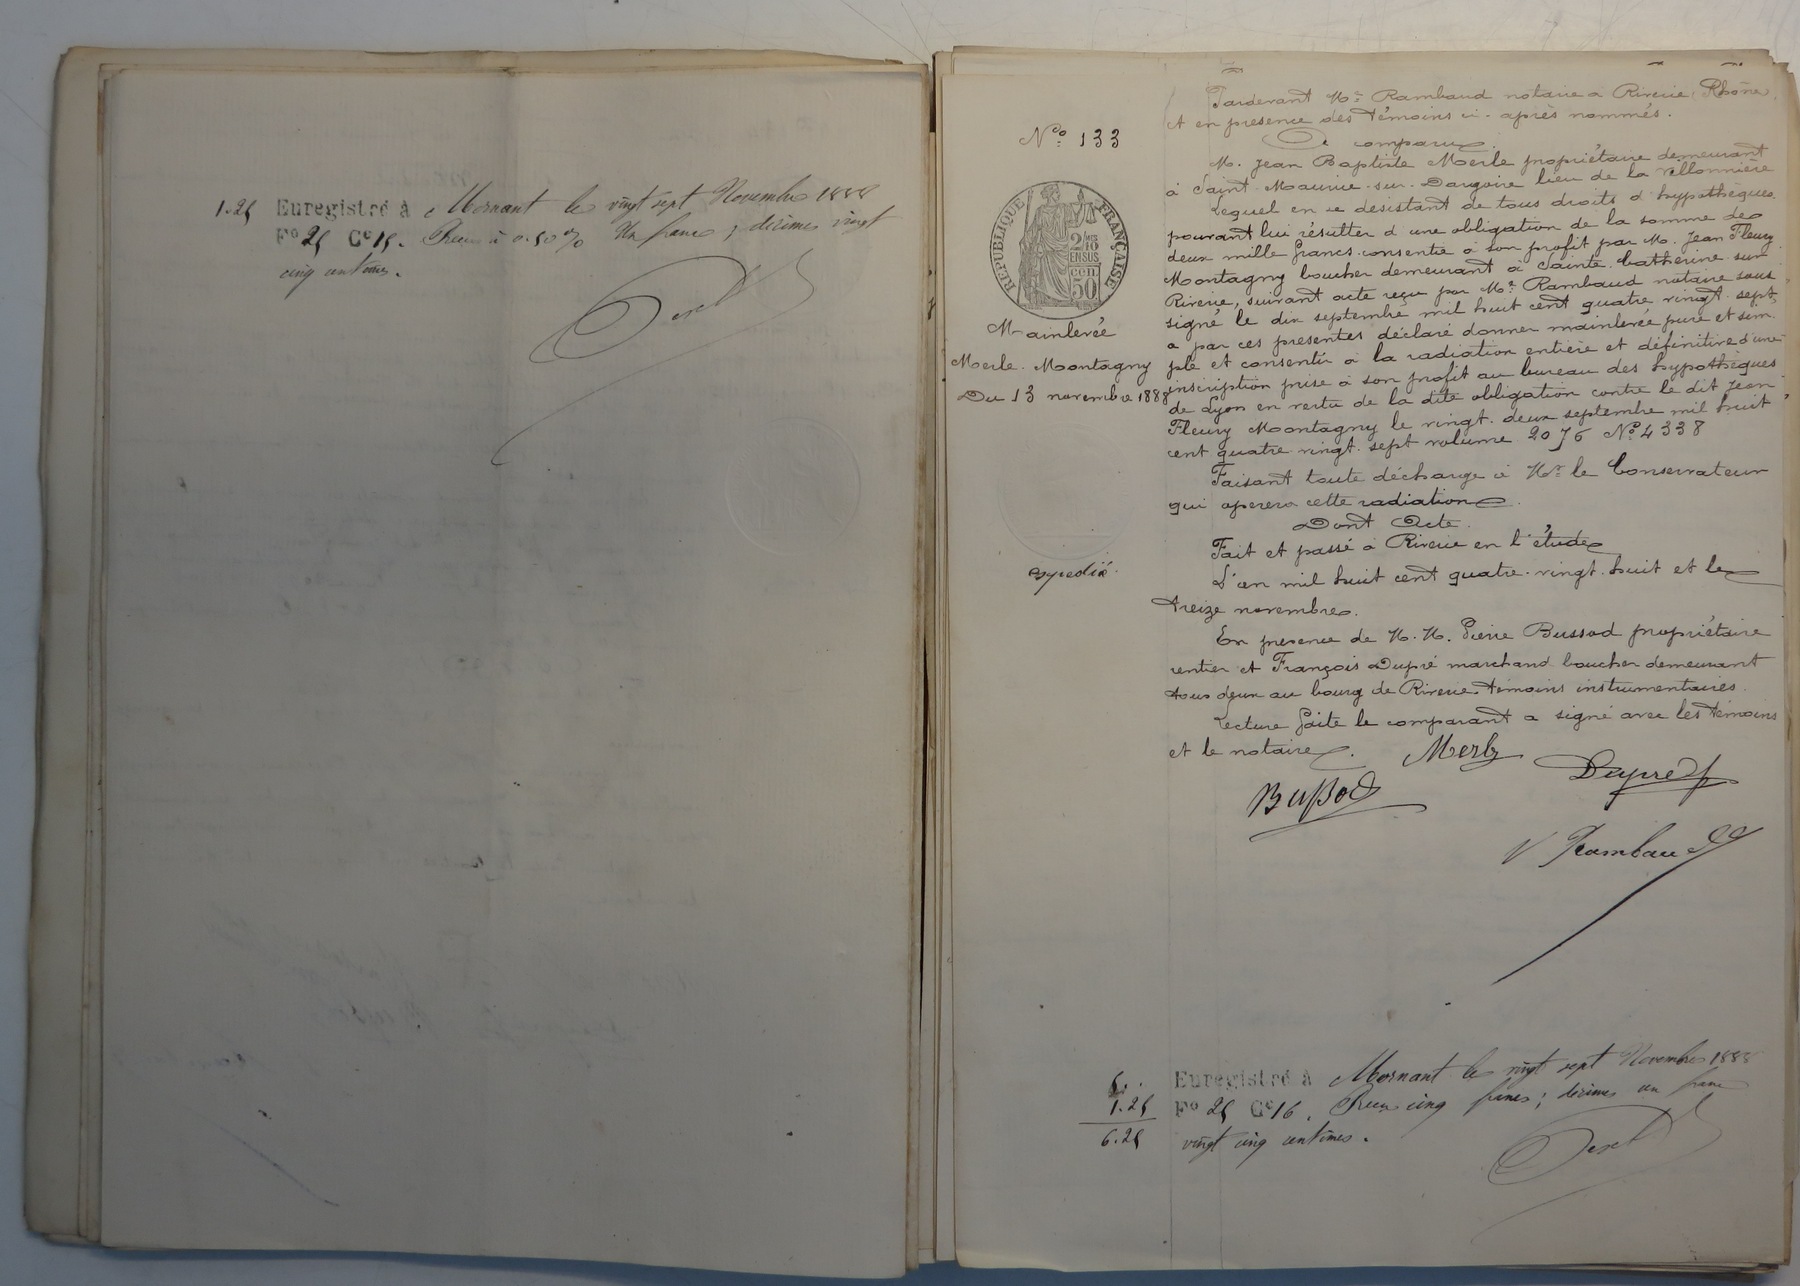 1.25 Enregistré à Mornant le vingt sept Novembre 1888
F° 25 Ce 15. Reçu à 0.50 % Un franc; décimes vingt
cinq centimes.
N° 133
RÉPUBLIQUE FRANÇAISE
2/10 EN SUS
cen. 50
Mainlevée
Merle. Montagny
Du 13 novembre 1888
expedié.
Pardevant Me Rambaud notaire à Riverie (Rhône)
et en présence des témoins ci-après nommés.
A comparu
M. Jean Baptiste Merle propriétaire demeurant
à Saint-Maurice-sur-Dargoire lieu de la Villonnière
Lequel en se désistant de tous droits d'hypothèques
pouvant lui résulter d'une obligation de la somme de
deux mille francs consentie à son profit par M. Jean Fleury
Montagny boucher demeurant à Sainte-Catherine-sur
Riverie, suivant acte reçu par Me Rambaud notaire sous
signé le dix septembre mil huit cent quatre vingt-sept,
a par ces présentes déclaré donner mainlevée pure et sim-
ple et consentir à la radiation entière et définitive d'une
inscription prise à son profit au bureau des hypothèques
de Lyon en vertu de la dite obligation contre le dit Jean
Fleury Montagny le vingt-deux septembre mil huit
cent quatre-vingt-sept volume 2076 N° 4338
Faisant toute décharge à Mr le Conservateur
qui operera cette radiation.
Dont Acte.
Fait et passé à Riverie en l'étude
L'an mil huit cent quatre-vingt-huit et le
treize novembre.
En presence de M.M. Pierre Bussod propriétaire
rentier et François Dupré marchand boucher demeurant
tous deux au bourg de Riverie témoins instrumentaires.
Lecture faite le comparant a signé avec les témoins
et le notaire.
Merle
Dupré
Bussod
V Rambaud
5. "
1.25
6.25
Enregistré à Mornant le vingt sept Novembre 1888
F° 25 Ce 16. Reçu cinq francs; décimes un franc
vingt cinq centimes.